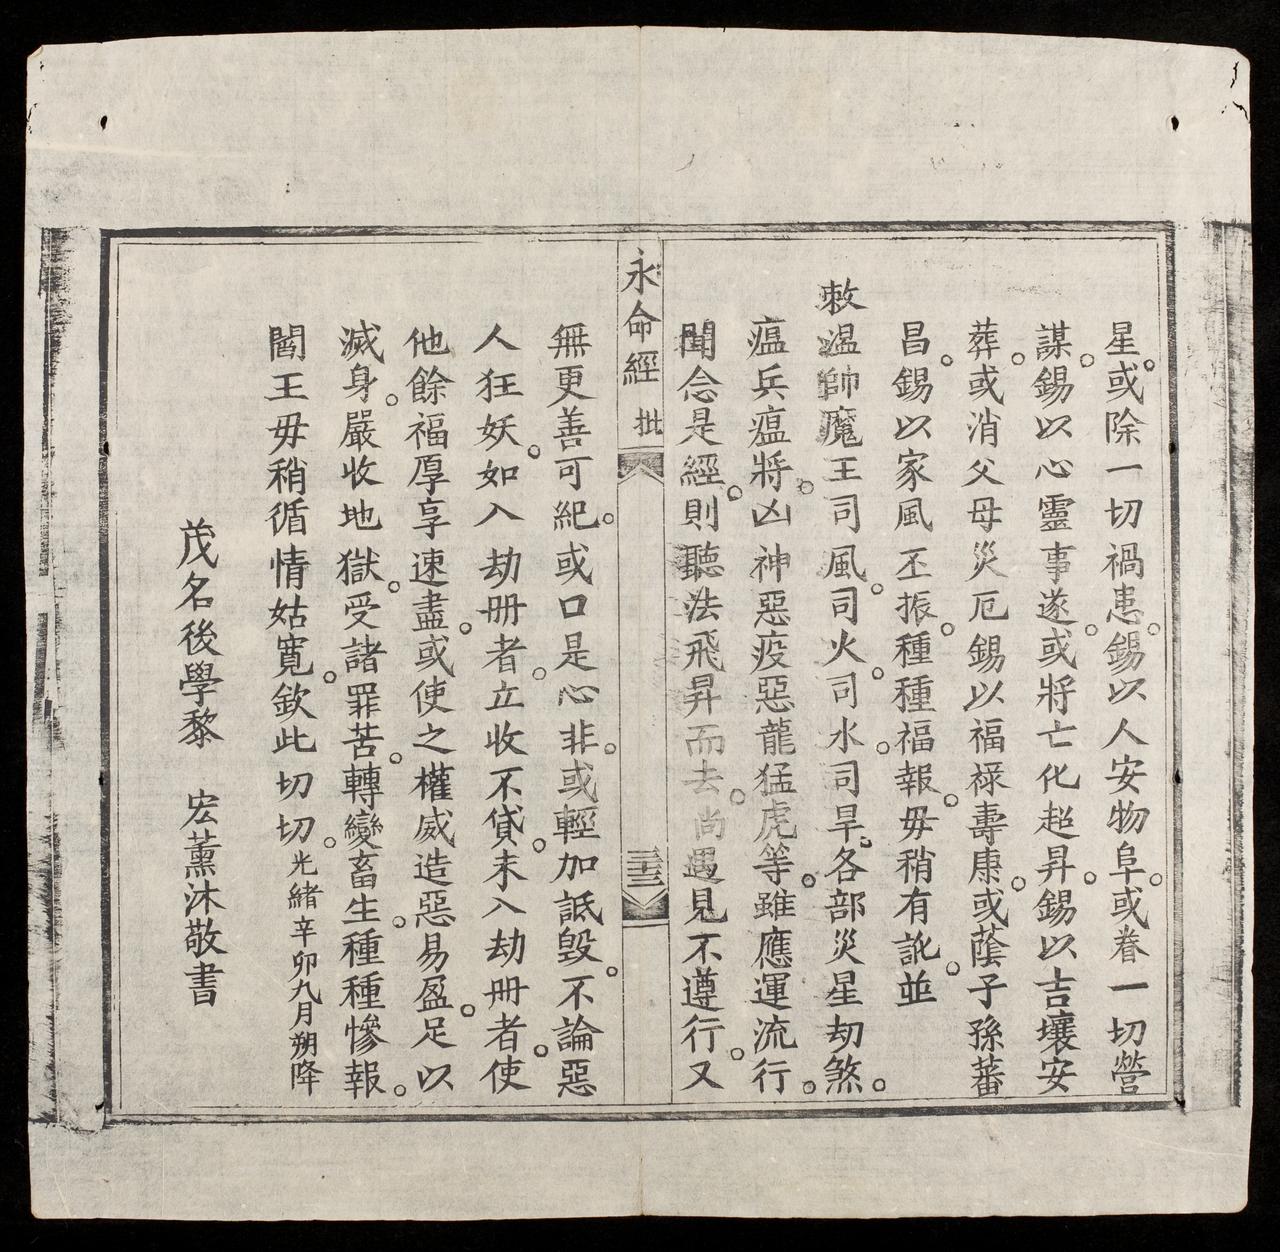 星。或除一切禍患。錫以人安物阜。或眷一切營
謀。錫以心靈事遂。或將亡化超昇。錫以吉壤安
葬。或消父母災厄錫以福祿壽康。或蔭子孫蕃
昌。錫以家風丕振。種種福報。毋稍有訛。並
敕溫帥魔王司風。司火。司水。司旱。各部災星劫煞。
瘟兵瘟將。凶神惡疫惡龍猛虎等。雖應運流行。
聞念是經。則聽法飛昇而去。尚遇見不遵行。又
永命經 批 三十三
無更善可紀。或口是心非。或輕加詆毀。不論惡
人狂妖。如入劫冊者。立收不貸。未入劫冊者。使
他餘福厚享速盡。或使之權威造惡易盈。足以
滅身。嚴收地獄。受諸罪苦。轉變畜生。種種慘報。
閻王毋稍循情姑寬。欽此切切。光緒辛卯九月朔降
茂名後學黎 宏薰沐敬書